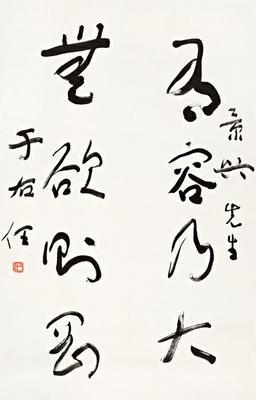 景興先生
有容乃大
無欲則剛
于右任